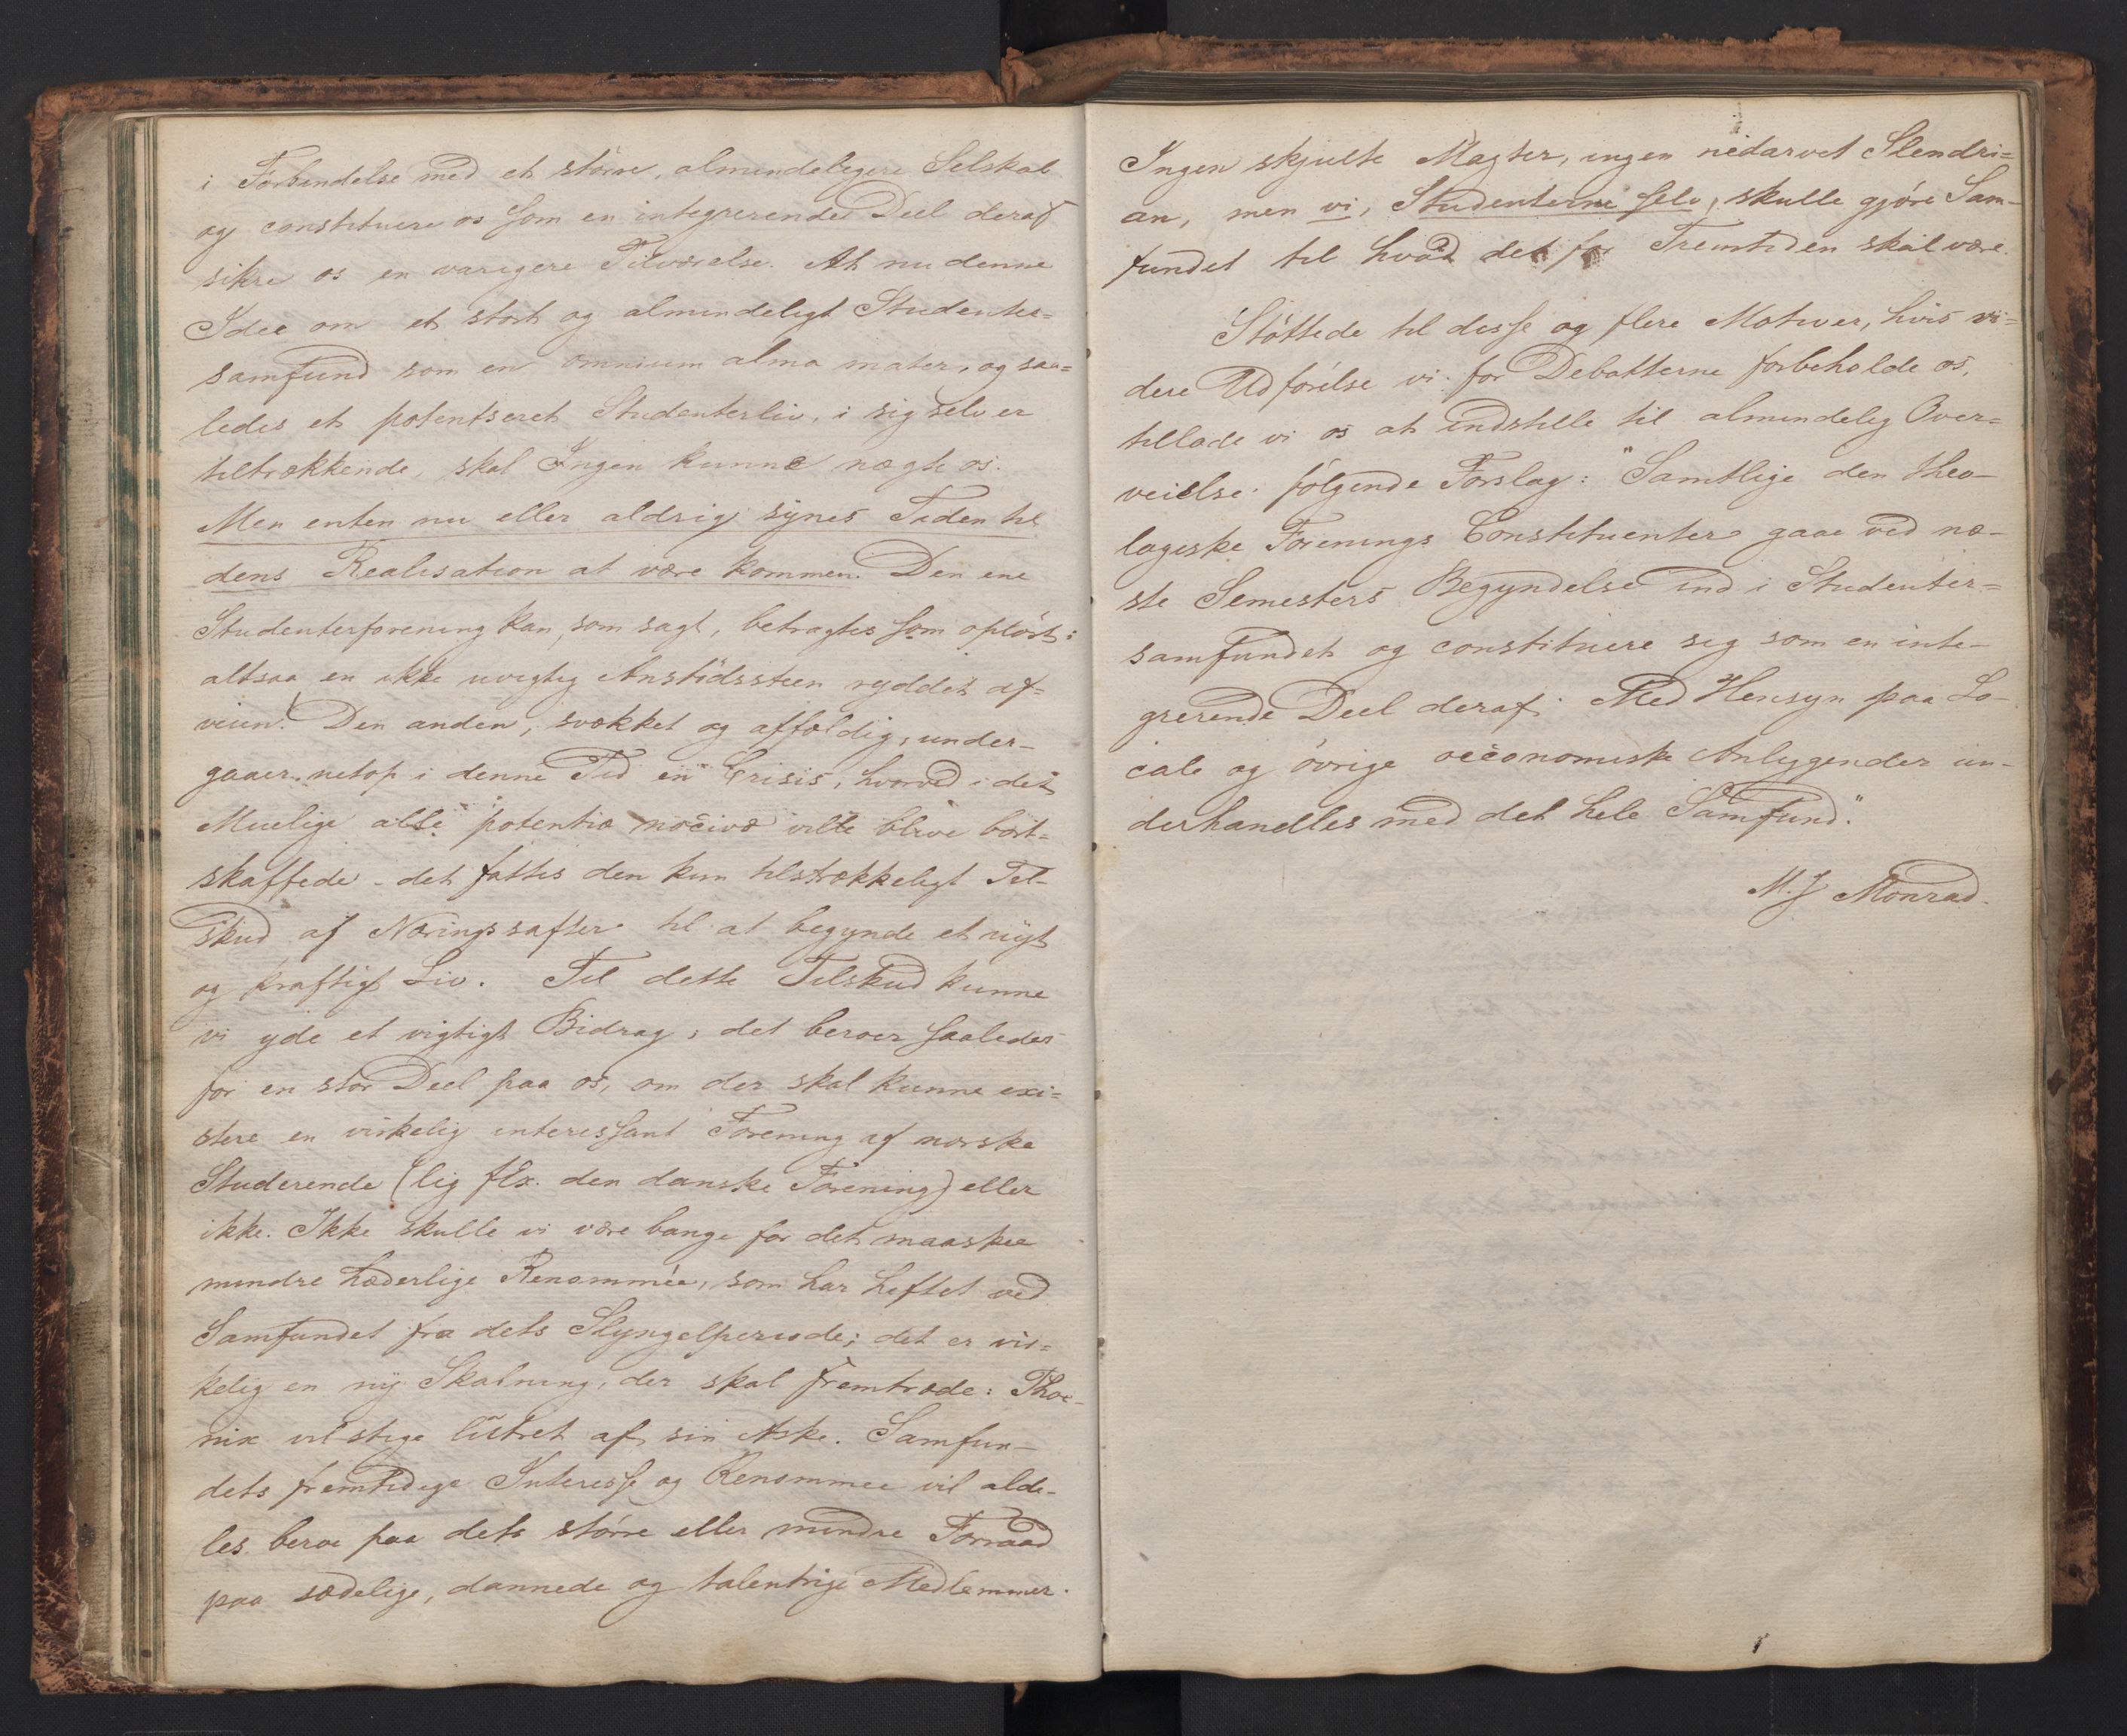 i Forbindelse med et större, almindeligere Selskab
og constituere os som en integrerende Deel deraf
sikre os en varigere Tilværelse. At nu denne
Idee om et stort og almindeligt Studenter=
samfund som en omnium alma mater, og saa=
ledes et potentseret Studenterliv, i sig selv er
tiltrækkende, skal Ingen kunne nægte os.
Men enten nu eller aldrig synes Tiden til
dens Realisation at være kommen. Den ene
Studenterforening kan, som sagt, betragtes som oplöst:
altsaa en ikke uvigtig Anstödssteen ryddet af=
veien. Den anden, svækket og affældig, under-
gaaer netop i denne Tid en Crisis, hvorved i det
Muelige alle potentiæ nocivæ ville blive bort=
skaffede - det fattes den kun tilstrækkeligt Til-
skud af Næringssafter til at begynde et nÿt
og kraftigt Liv. Til dette Tilskud kunne
vi yde et vigtigt Bidrag; det beroer saaledes
for en stor Deel paa os, om der skal kunne exi=
stere en virkelig interessant Forening af norske
Studerende (lig fEx. den danske Forening) eller
ikke. Ikke skulle vi være bange for det maaskee
mindre hæderlige Renommée, som har heftet ved
Samfundet fra dets Slyngelperiode; det er vir=
kelig en nÿ Skabning, der skal fremtræde: Phoe-
nix vil stige lutret af sin Aske. Samfun-
dets fremtidige Interesse og Renommee vil alde-
les beroe paa dets större eller mindre Forraad
paa sædelige, dannede og talentrige Medlemmer.
Ingen skjulte Magter, ingen nedarvet Slendri=
an, men vi, Studenterne selv, skulle gjöre Sam-
fundet til hvad det for Fremtiden skal være.
Stöttede til disse og flere Motiver, hvis vi=
dere Udförelse vi for Debatterne forbeholde os,
tillade vi os at indstille til almindelig Over=
veielse fölgende Forslag: "Samtlige den theo-
logiske Forenings Constituenter gaae ved næ-
ste Semesters Begyndelse ind i Studenter=
samfundet og constituere sig som en inte-
grerende Deel deraf. Med Hensyn paa Lo-
cale og övrige oeconomiske Anliggender un-
derhandles med det hele Samfund."
M. J Monrad.